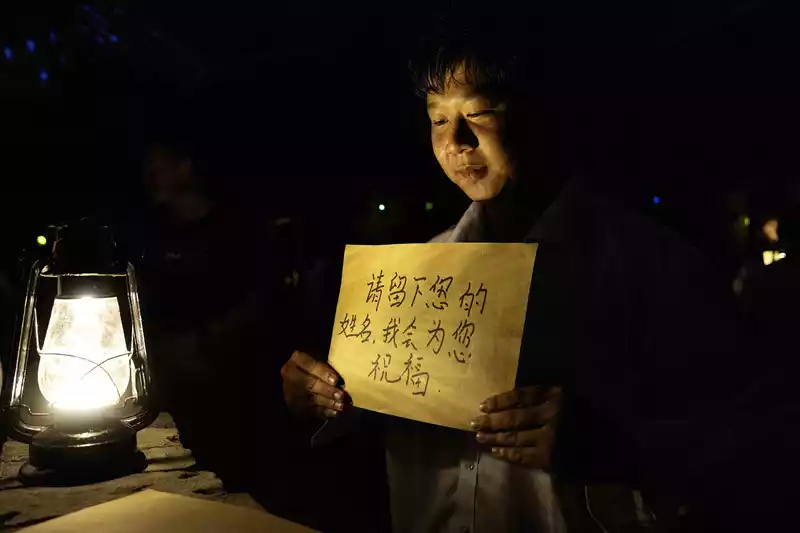 请留下您的
姓名,我会为您
祝福.